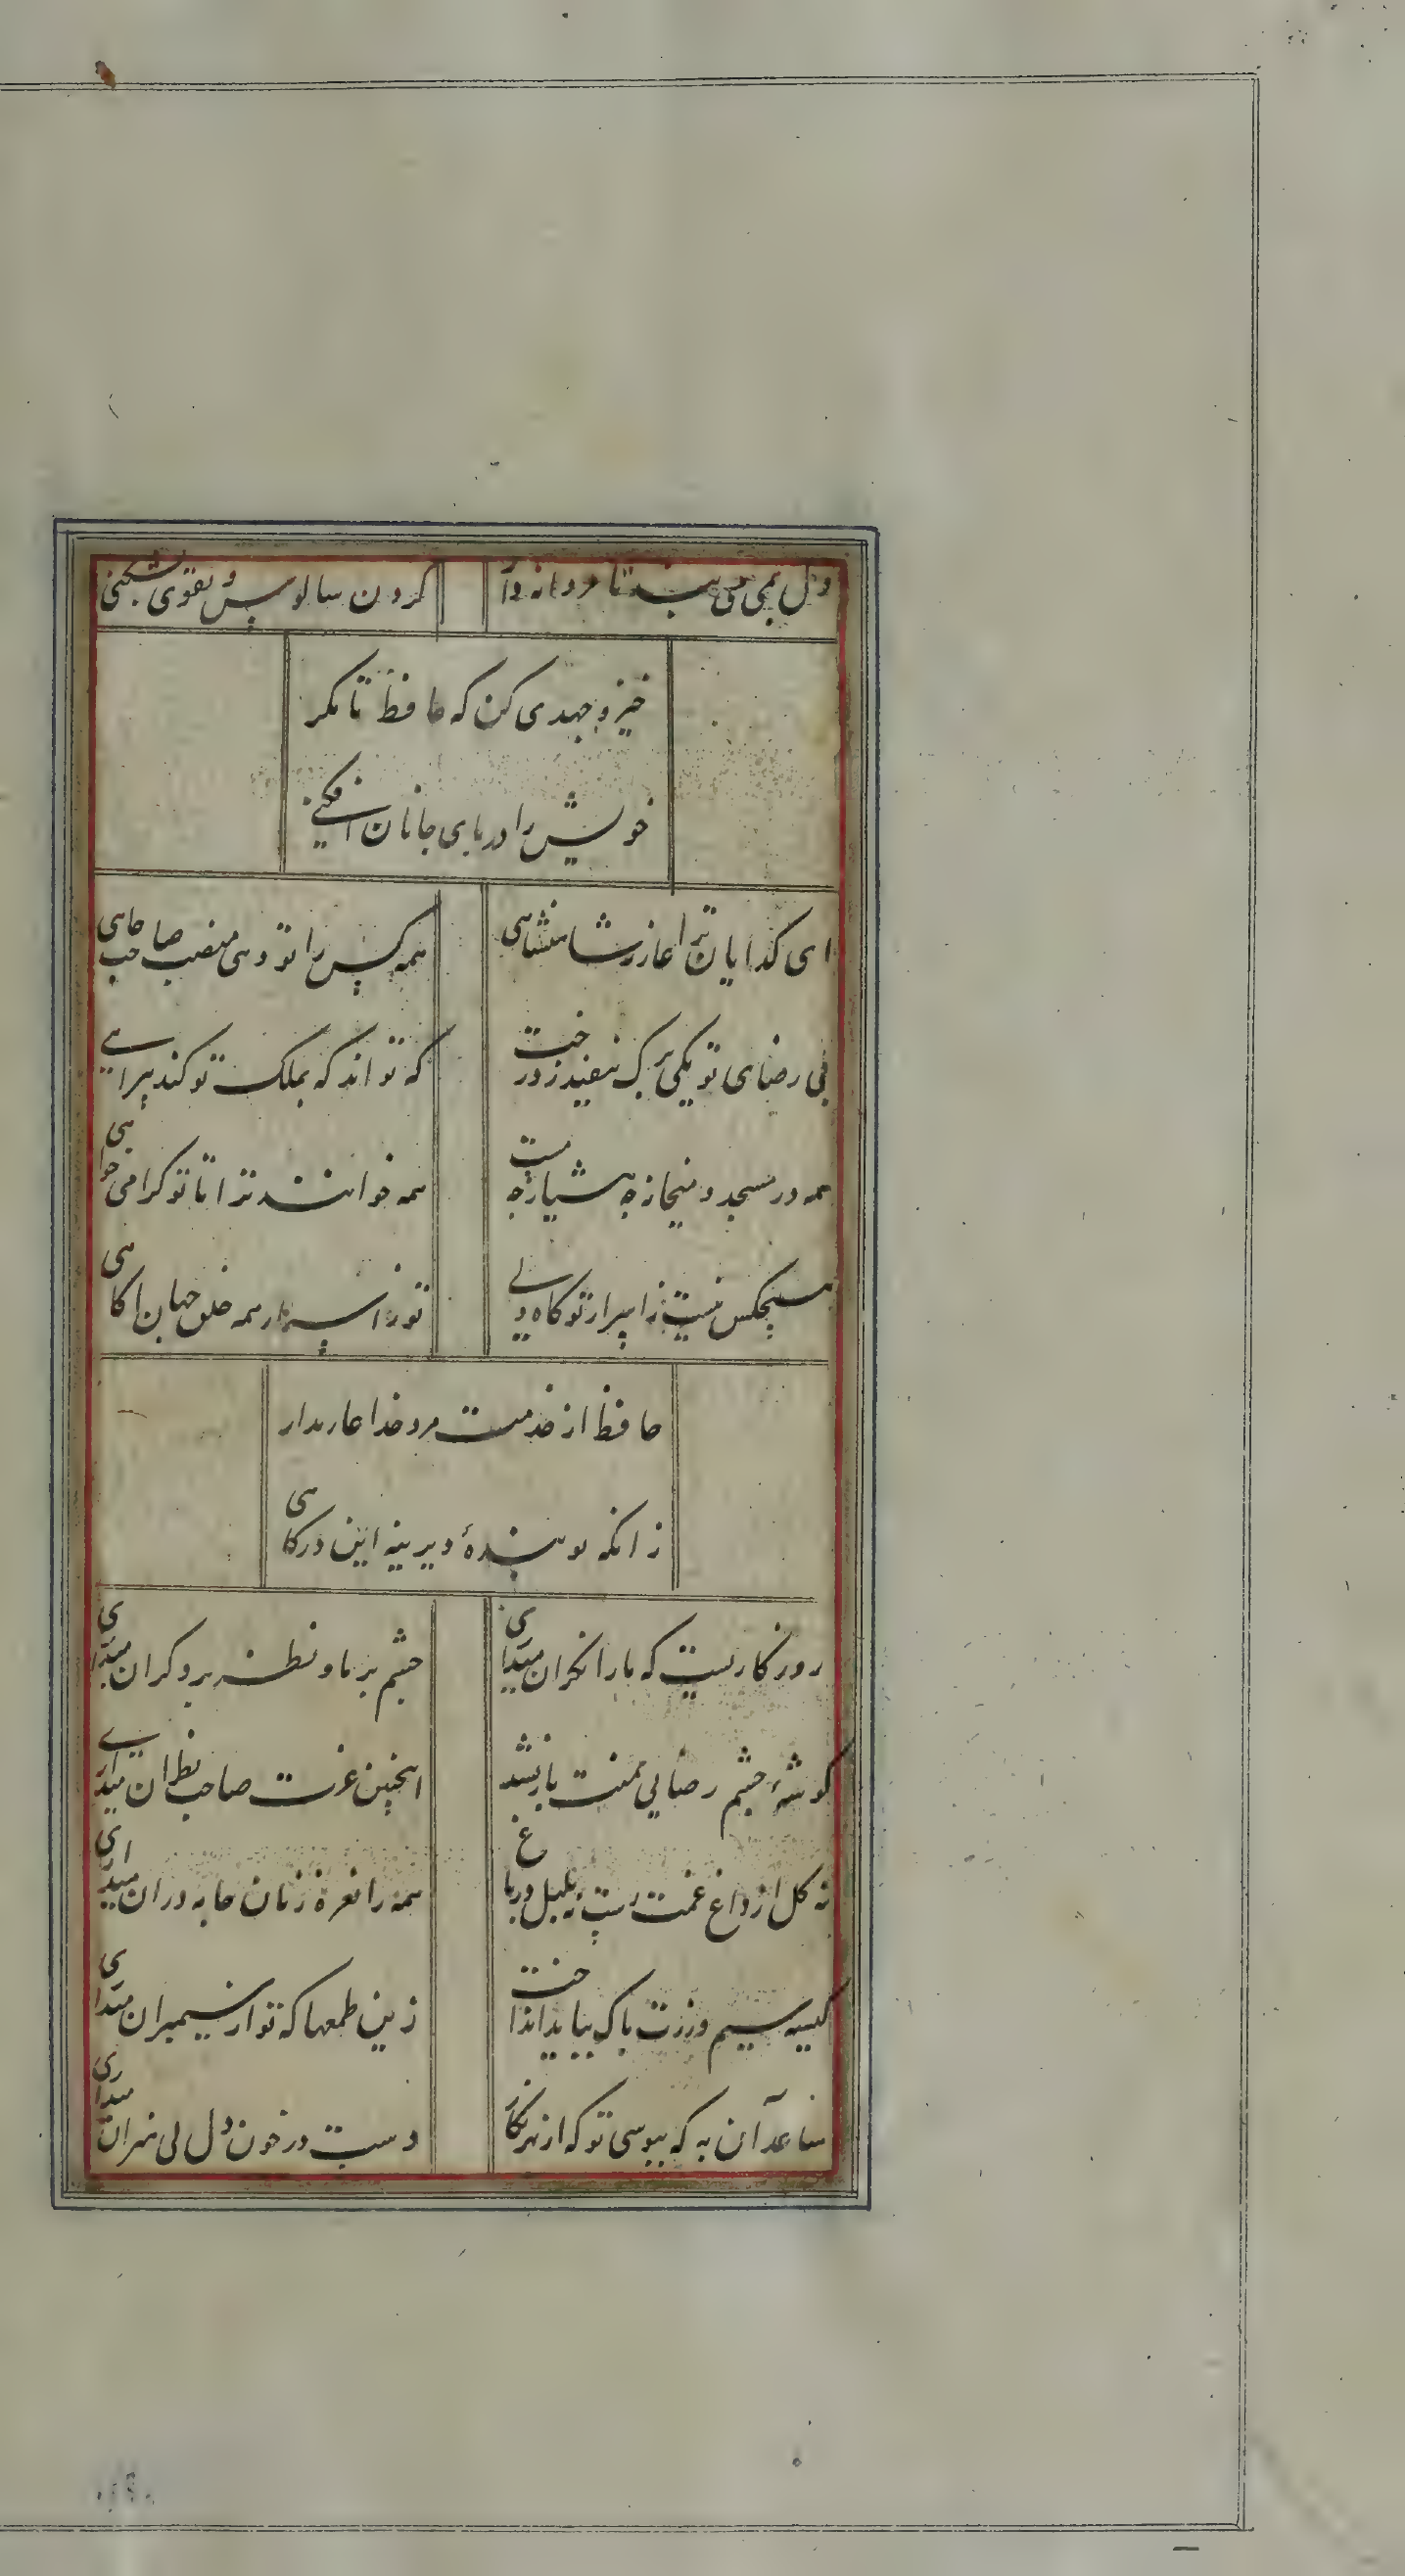 دل بمی در بند تا مردانه وار
گردن سالوس و تقوی بشکنی
خیز و جهدی کن که حافظ تا مکر
خویش را در پای جانان افکنی
ای کدایان ترا عار ز شاهنشاهی
همه کس را تو دهی منصب صاحب جاهی
بی رضای تو یکی برک نیفتد ز درخت
که تواند که بملک تو کند بیراهی
همه در مسجد و میخانه چه هشیار چه مست
همه خوانند ترا تا تو کرا می خواهی
هیچکس نیست ز اسرار تو کاه ولی
تو ز اسرار همه خلق جهان اکاهی
حافظ از خدمت مرد خدا عار مدار
زانکه تو بندهٔ دیرینه این درکاهی
روزکاریست که ما را نکران میداری
چشم بر ما و نظر بر دکران میداری
کوشهٔ چشم رضایی بمنت باز نشد
اینچنین عزت صاحب نظران میداری
نه کل از داغ غمت رست نه بلبل در باغ
همه را نعره زنان جامه دران میداری
کیسه سیم و زرت پاک بباید انداخت
زین طمعها که تو از سیمبران میداری
ساعد آن به که بپوشی تو که از بهر نکار
دست در خون دل بی‌ هنران میداری